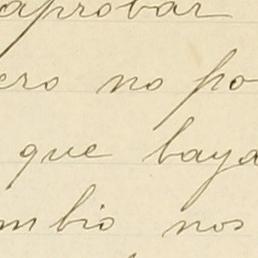 aprobar
ero no po
que baya
mbio nos